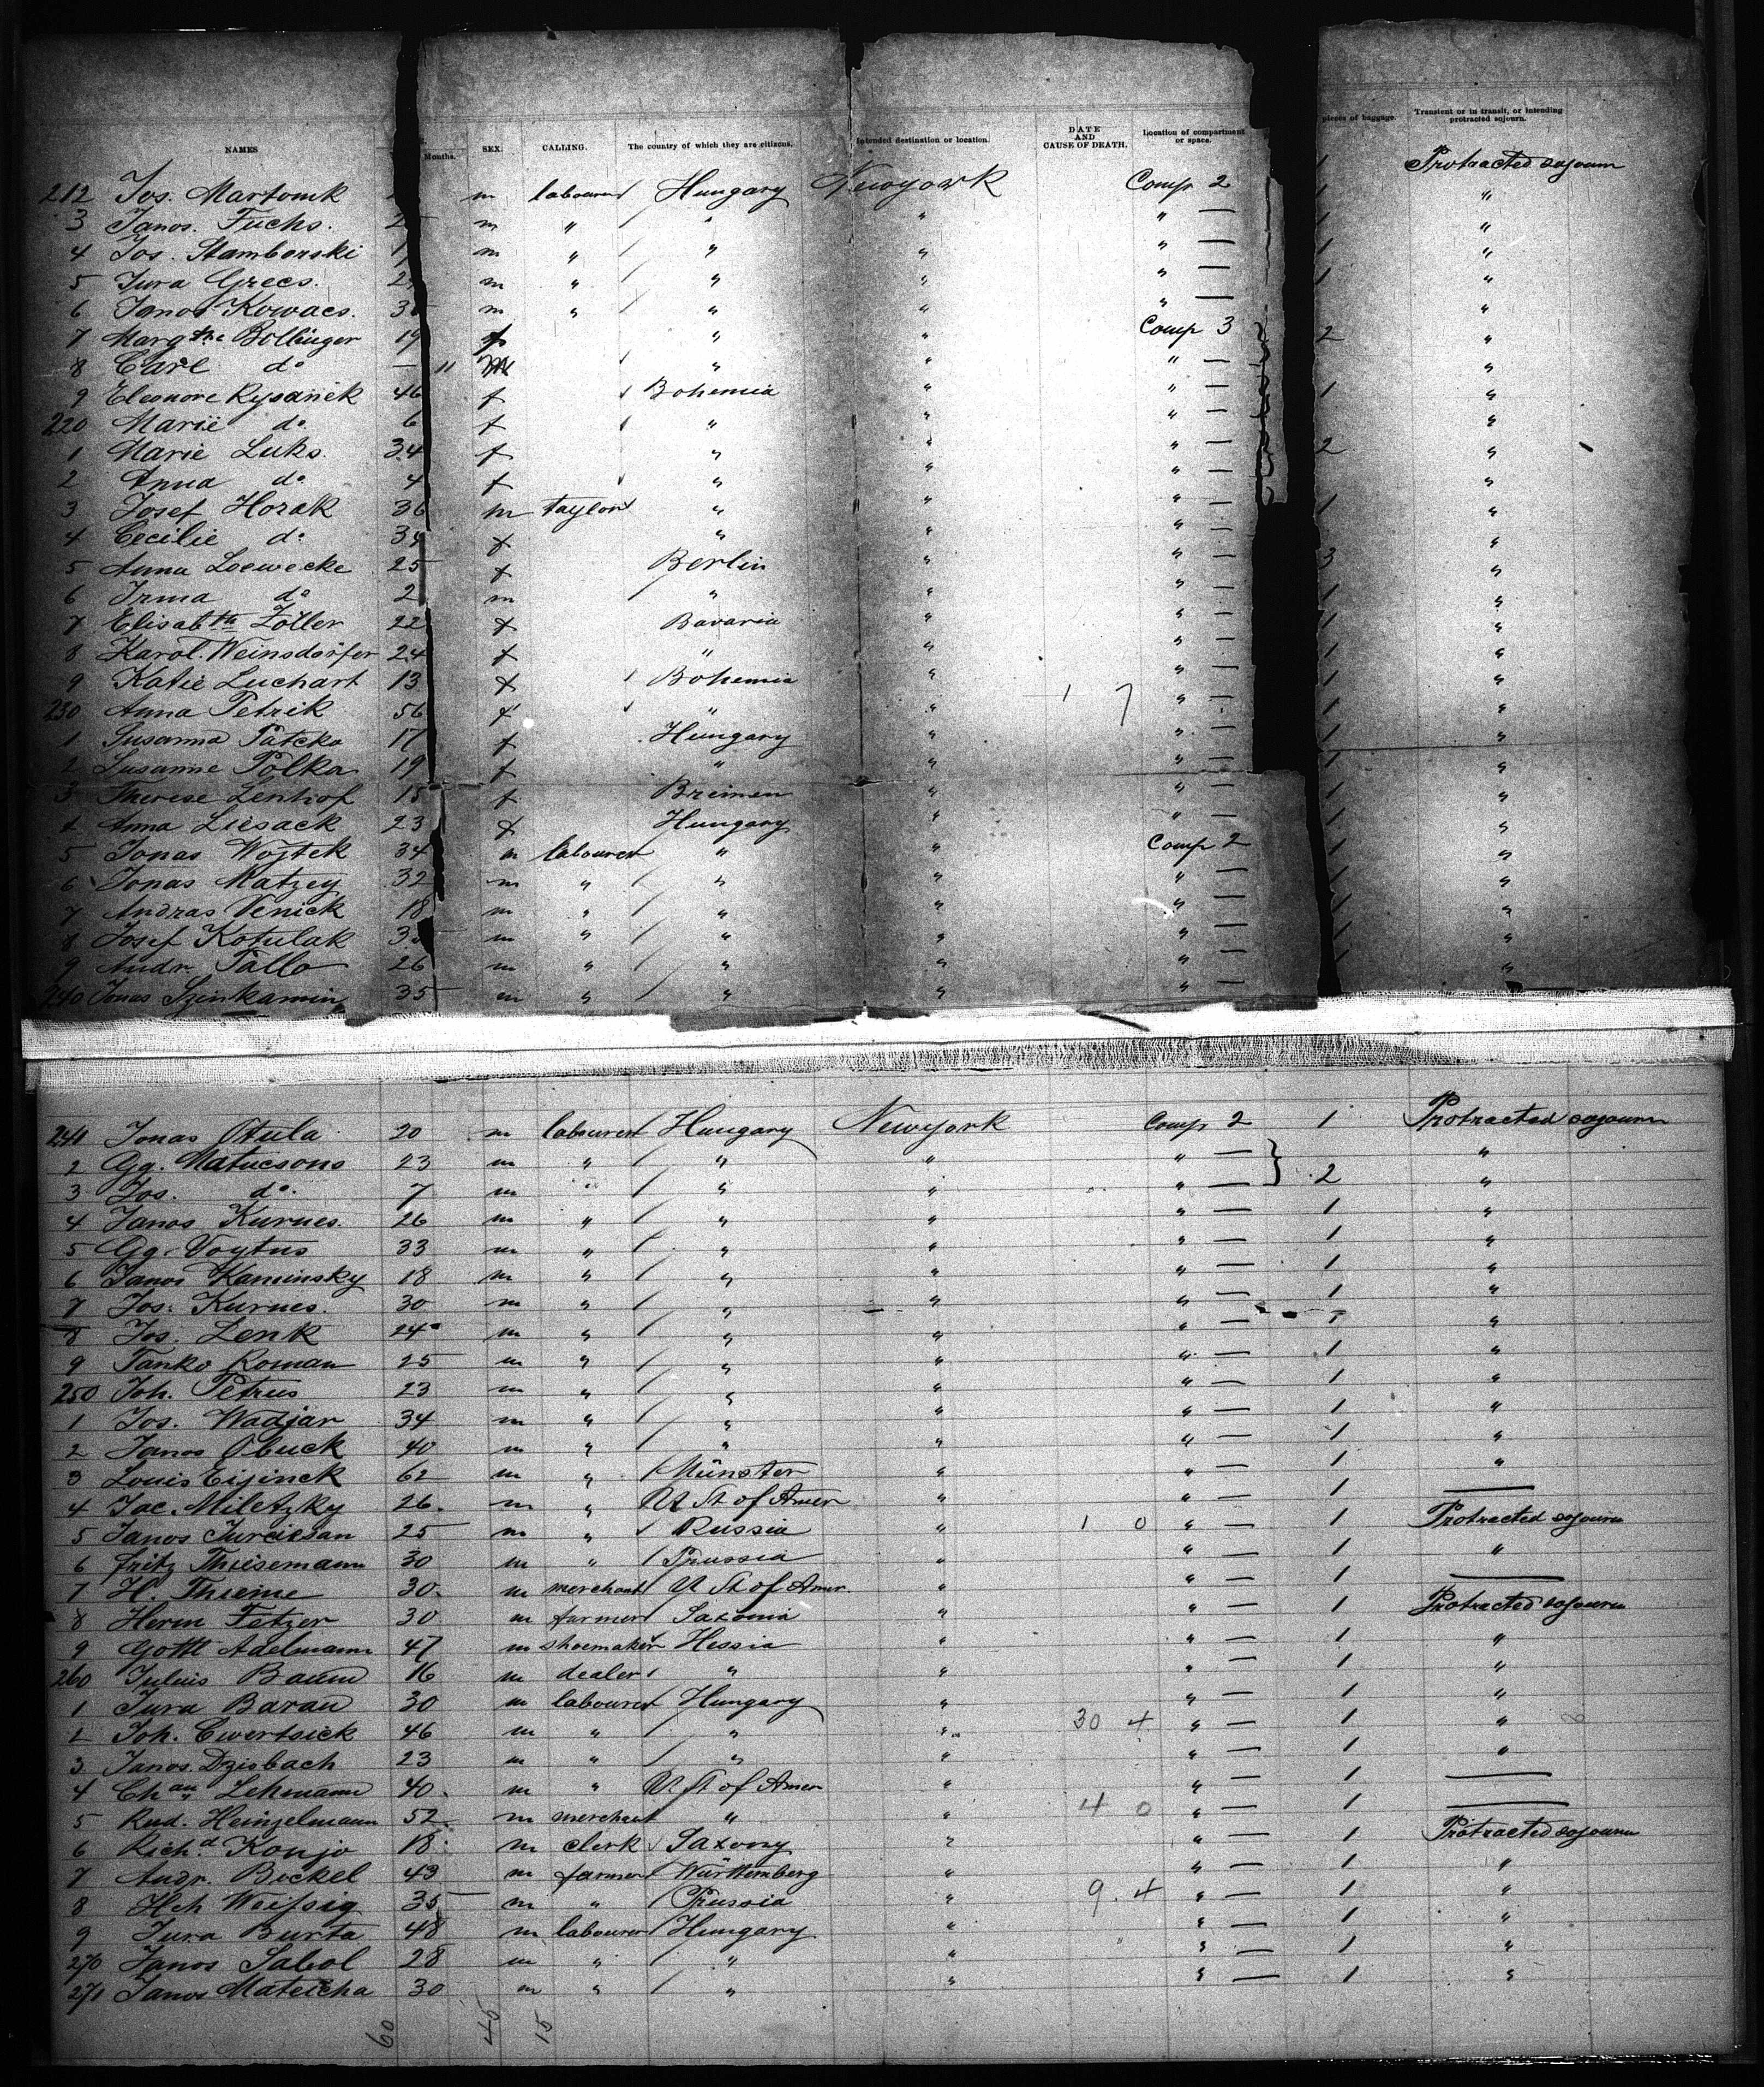 NAMES Months. SEX. CALLING. The country of which they are citizens. Intended destination or location. DATE AND CAUSE OF DEATH. Location of compartment or space. pieces of baggage. Transient or in transit, or intending protracted sojourn.
212 Jos. Martonik m labourer Hungary Newyork Comp 2 1 Protracted sojourn
3 Janos. Fuchs. m " " " " — 1 "
4 Jos. Stamborski m " " " " — 1 "
5 Jura Grecs. m " " " " — 1 "
6 Janos Kowacs. m " " " " — "
7 Margthe Bollinger 19 f " " Comp 3 2 "
8 Carl do — 11 m " " " — "
9 Eleonore Rysanek 46 f Bohemia " " — 1 "
220 Marie do. 6 f " " " — "
1 Marie Luks. 34 f " " " — 2 "
2 Anna do 4 f " " " — "
3 Josef Horak 36 m taylor " " " — 1 "
4 Cecilie do. 34 f " " " — "
5 Anna Loewecke 25 f Berlin " " — 3 "
6 Irma do 2 m " " " — 1 "
7 Elisabth Zöller 22 f Bavaria " " — 1 "
8 Karol. Weinsdörfer 24 f " " " — 1 "
9 Katie Luchart 13 f Bohemia " " — 1 "
230 Anna Petrik 56 f " " 1 7 " — 1 "
1 Susanna Patcko 17 f Hungary " " — 1 "
2 Susanne Polka 19 f " " " — 1 "
3 Therese Lenhof 15 f Bremen " " — 1 "
4 Anna Liesack 23 f Hungary " " — 1 "
5 Jonas Wojtek 34 m labourer " " Comp 2 1 "
6 Jonas Matzey 32 m " " " " — 1 "
7 Andras Venick 18 m " " " " — 1 "
8 Josef Kotulak m " " " " — 1 "
9 Andr. Pallo 26 m " " " " — 1 "
240 Jonas Szinkamin 35 m " " " " — "
241 Jonas Otula 20 m labourer Hungary Newyork Comp 2 1 Protracted sojourn
2 Gg. Matucsons 23 m " " " " — "
3 Jos. do. 7 m " " " " — 2 "
4 Janos Kurues. 26 m " " " " — 1 "
5 Gg. Voytus 33 m " " " " — 1 "
6 Janos Kaminsky 18 m " " " " — 1 "
7 Jos. Kurues. 30 m " " " " — 1 "
8 Jos. Lenk 24 m " " " " — 1 "
9 Janko Roman 25 m " " " " — 1 "
250 Joh. Petrus 23 m " " " " — 1 "
1 Jos. Wadjar 34 m " " " " — 1 "
2 Janos Obuck 40 m " " " " — 1 "
3 Louis Eijinck 62 m " Münster " " — 1 "
4 Jac. Miletzky 26. m " U St of Amer " " — 1 —
5 Janos Jurcissan 25 m " Russia " 1 0 " — 1 Protracted sojourn
6 Fritz Thiesemann 30 m " Prussia " " — 1 "
7 H. Thieme 30. m merchant U St of Amer. " " — 1 —
8 Herm Fetzer 30 m farmer Saxonia " " — 1 Protracted sojourn
9 Gottl Adelmann 47 m shoemaker Hessia " " — 1 "
260 Julius Baum 16 m dealer " " " — 1 "
1 Jura Baran 30 m labourer Hungary " " — 1 "
2 Joh. Cwertsick 46 m " " " 30 4 " — 1 "
3 Janos. Dzisbach 23 m " " " " — 1 "
4 Chan Lehmann 40. m " U St of Amer " " — 1 —
5 Rud. Heinzelmann 52 m merchant " " 4 0 " — 1 —
6 Richd Konjo 18 m clerk Saxony " " — 1 Protracted sojourn
7 Andr. Bockel 43 m farmer Württemberg " " — 1 "
8 Hch Weissig 35 m " Prussia " 9. 4 " — 1 "
9 Jura Burta 48 m labourer Hungary " " — 1 "
270 Janos Sabol 28 m " " " " — 1 "
271 Janos Mateicha 30 m " " " " — 1 "
60 45 15